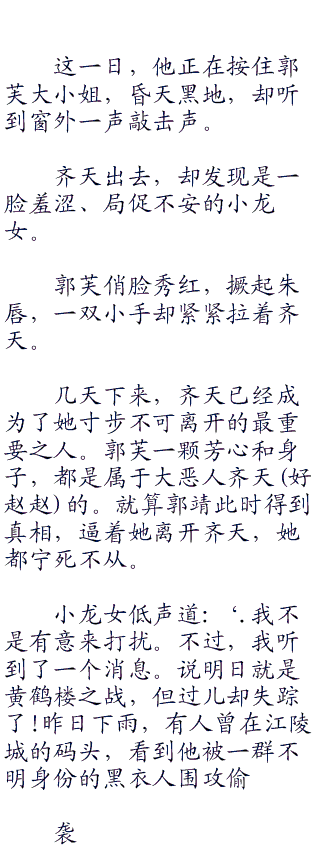 这一日，他正在按住郭
芙大小姐，昏天黑地，却听
到窗外一声敲击声。
齐天出去，却发现是一
脸羞涩、局促不安的小龙
女。
郭芙俏脸秀红，撅起朱
唇，一双小手却紧紧拉着齐
天。
几天下来，齐天已经成
为了她寸步不可离开的最重
要之人。郭芙一颗芳心和身
子，都是属于大恶人齐天(好
赵赵)的。就算郭靖此时得到
真相，逼着她离开齐天，她
都宁死不从。
小龙女低声道：‘.我不
是有意来打扰。不过，我听
到了一个消息。说明日就是
黄鹤楼之战，但过儿却失踪
了!昨日下雨，有人曾在江陵
城的码头，看到他被一群不
明身份的黑衣人围攻偷
袭